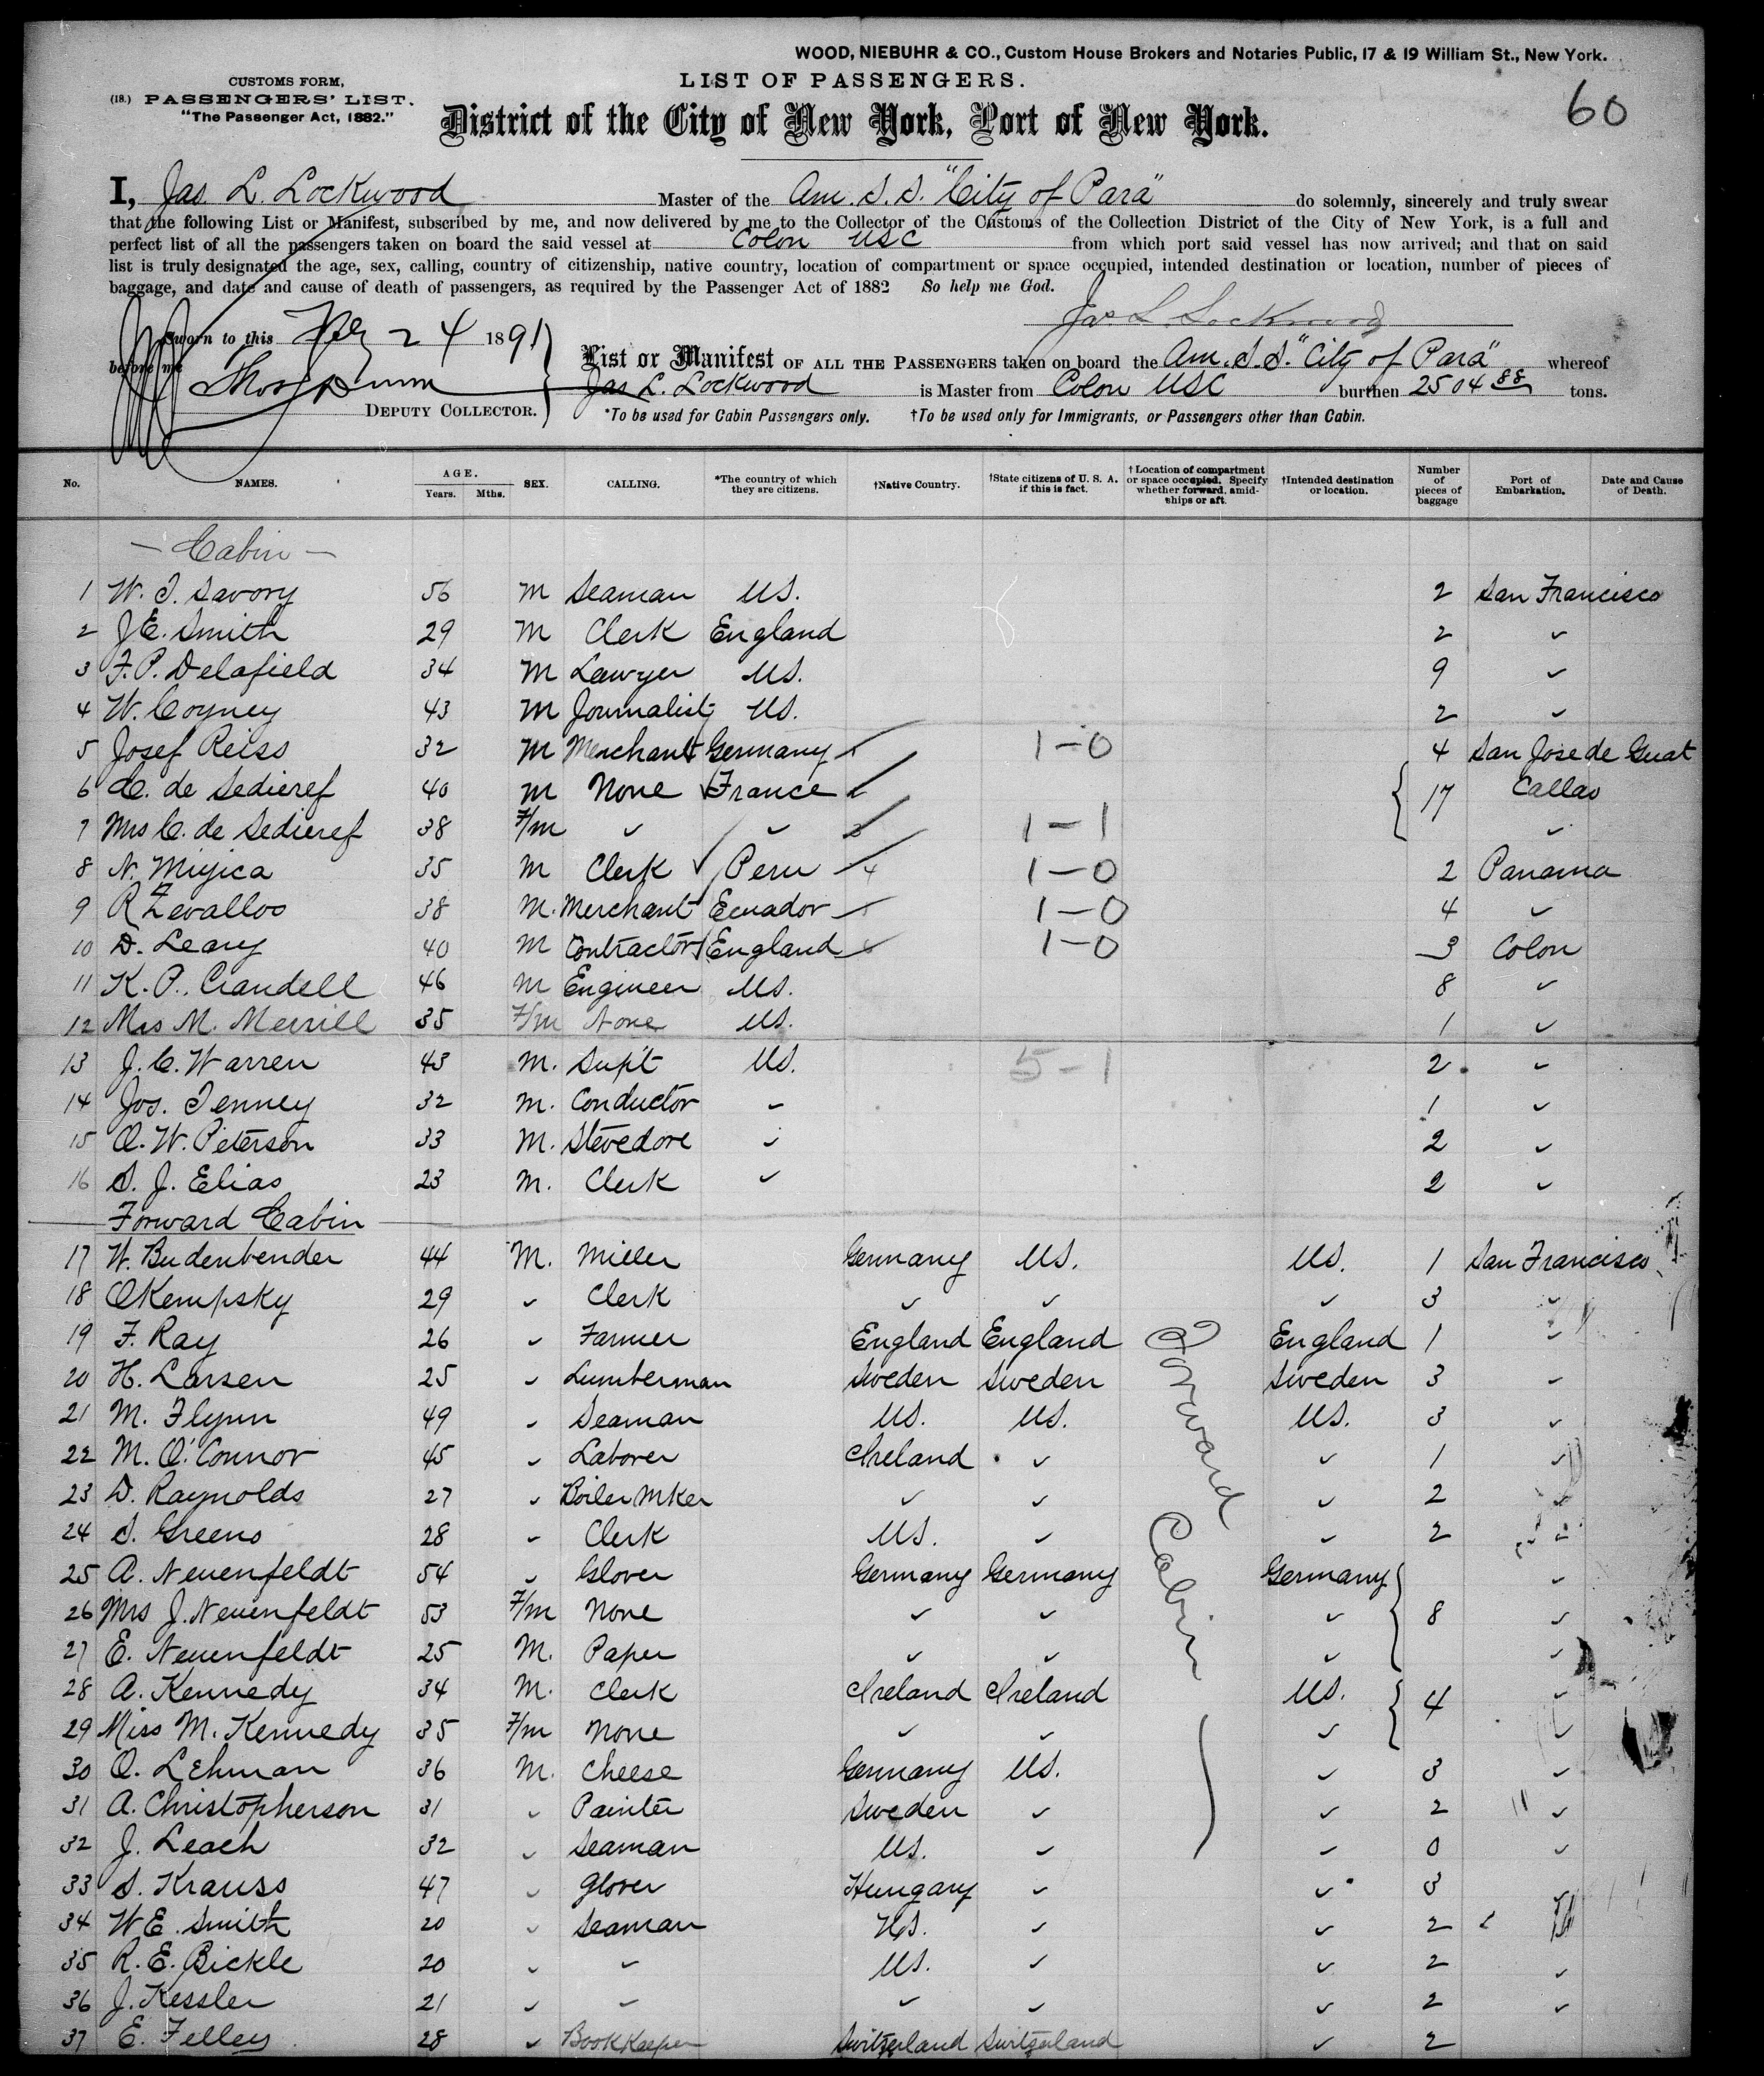 WOOD, NIEBUHR & CO., Custom House Brokers and Notaries Public, 17 & 19 William St., New York.
CUSTOMS FORM,
(18.) PASSENGERS' LIST.
"The Passenger Act, 1882."
LIST OF PASSENGERS.
60
District of the City of New York, Port of New York.
I, Jas. L. Lockwood Master of the Am. S. S. "City of Para" do solemnly, sincerely and truly swear
that the following List or Manifest, subscribed by me, and now delivered by me to the Collector of the Customs of the Collection District of the City of New York, is a full and
perfect list of all the passengers taken on board the said vessel at Colon USC from which port said vessel has now arrived; and that on said
list is truly designated the age, sex, calling, country of citizenship, native country, location of compartment or space occupied, intended destination or location, number of pieces of
baggage, and date and cause of death of passengers, as required by the Passenger Act of 1882 So help me God.
Jas. L. Lockwood
Sworn to this 24 1891
before me
DEPUTY COLLECTOR.
List or Manifest OF ALL THE PASSENGERS taken on board the Am. S. S. "City of Para" whereof
Jas L. Lockwood is Master from Colon USC burthen 2504 88 tons.
*To be used for Cabin Passengers only. †To be used only for Immigrants, or Passengers other than Cabin.
No. NAMES. AGE. Years. Mths. SEX. CALLING. *The country of which they are citizens. †Native Country. †State citizens of U. S. A. if this is fact. †Location of compartment or space occupied. Specify whether forward, amidships or aft. †Intended destination or location. Number of pieces of baggage Port of Embarkation. Date and Cause of Death.
- Cabin -
1 W. T. Savory 56 M Seaman US. 2 San Francisco
2 J.E. Smith 29 M Clerk England 2 ✓
3 F. P. Delafield 34 M Lawyer US. 9 ✓
4 W. Coyney 43 M Journalist US. 2 ✓
5 Josef Reiss 32 M Merchant Germany 1-0 4 San Jose de Guat
6 C. de Sedieref 40 M None France 17 Callao
7 Mrs C. de Sedieref 38 F/m ✓ ✓ 1-1 ✓
8 N. Mijica 35 M Clerk Peru 4 1-0 2 Panama
9 R Zevallos 38 M. Merchant Ecuador 1-0 4 ✓
10 D. Leary 40 M Contractor England 1-0 3 Colon
11 K. P. Crandell 46 M Engineer US. 8 ✓
12 Mrs M. Merrill 35 F/m None US. 1 ✓
13 J. C. Warren 43 M. Sup't US. 5-1 2 ✓
14 Jos. Tenney 32 M. Conductor ✓ 1 ✓
15 O. W. Peterson 33 M. Stevedore ✓ 2 ✓
16 S. J. Elias 23 M. Clerk ✓ 2 ✓
Forward Cabin
17 W. Budenbender 44 M. Miller Germany US. US. 1 San Francisco
18 O Kempsky 29 ✓ Clerk ✓ ✓ ✓ 3 ✓
19 F. Ray 26 ✓ Farmer England England England 1 ✓
20 H. Larsen 25 ✓ Lumberman Sweden Sweden Sweden 3 ✓
21 M. Flynn 49 ✓ Seaman US. US. US. 3 ✓
22 M. O'Connor 45 ✓ Laborer Ireland ✓ ✓ 1 ✓
23 D. Raynolds 27 ✓ Boiler Mker ✓ ✓ ✓ 2 ✓
24 S. Greeno 28 ✓ Clerk US. ✓ ✓ 2 ✓
25 A. Neuenfeldt 54 ✓ Glover Germany Germany Germany ✓
26 Mrs J. Neuenfeldt 53 F/m None ✓ ✓ ✓ 8 ✓
27 E. Neuenfeldt 25 M. Paper ✓ ✓ ✓ ✓
28 A. Kennedy 34 M. Clerk Ireland Ireland US. 4 ✓
29 Miss M. Kennedy 35 F/m None ✓ ✓ ✓ ✓
30 O. Lehman 36 M. Cheese Germany US. ✓ 3 ✓
31 A. Christopherson 31 ✓ Painter Sweden ✓ ✓ 2 ✓
32 J. Leach 32 ✓ Seaman US. ✓ ✓ 0 ✓
33 S. Krauss 47 ✓ Glover Hungary ✓ ✓ 3
34 W E. Smith 20 ✓ Seaman US. ✓ ✓ 2
35 R. E. Bickle 20 ✓ ✓ US. ✓ ✓ 2 ✓
36 J. Kessler 21 ✓ ✓ ✓ ✓ ✓ 2 ✓
37 E. Felley 28 ✓ BookKeeper Switzerland Switzerland ✓ 2
Forward Cabin